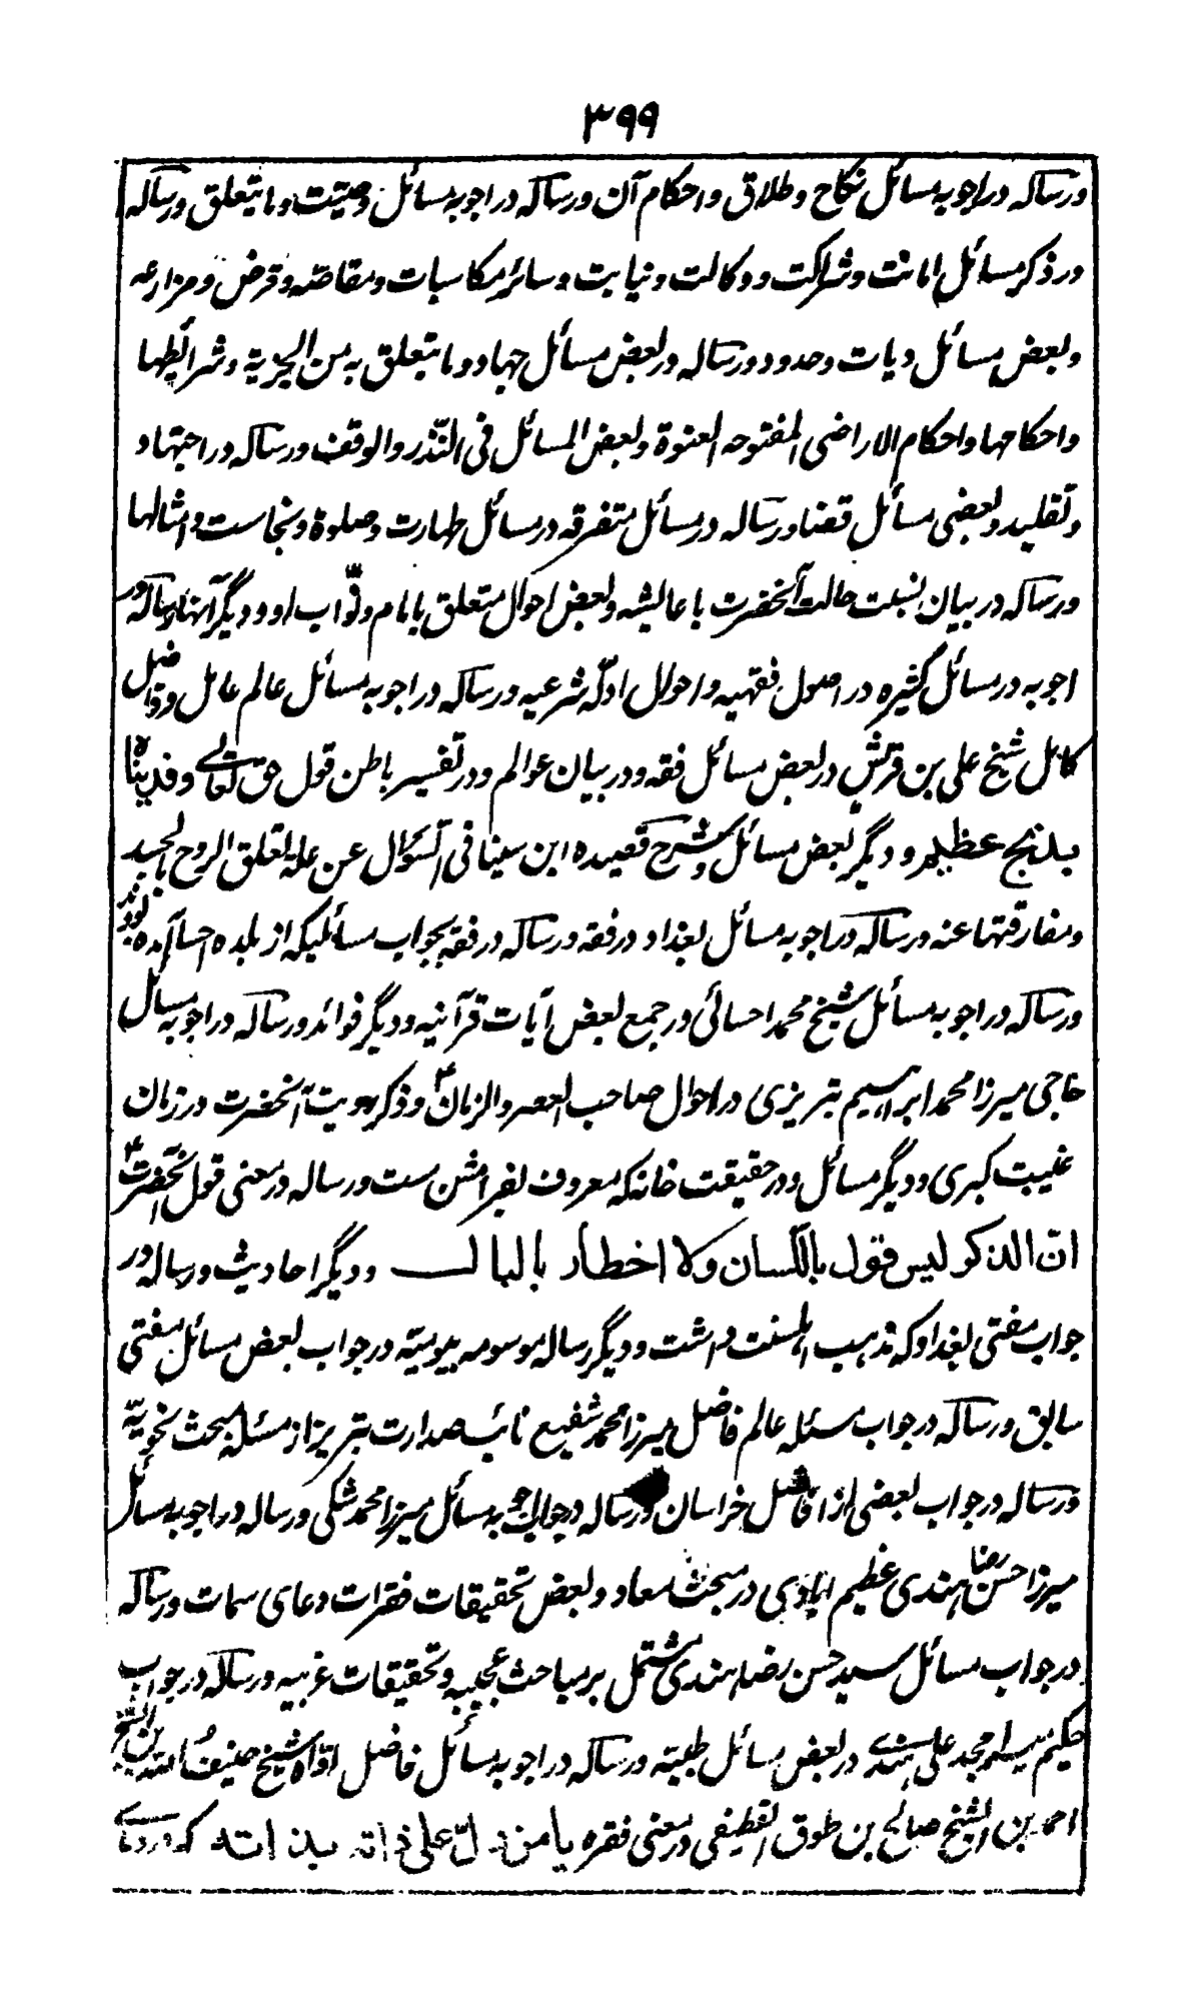 ۳۹۹
ورساله در اجوبه مسائل نکاح و طلاق و احکام آن ورساله در اجوبه مسائل وصیت و ما یتعلق ورساله
در ذکر مسائل امانت و شراکت و وکالت و نیابت و سائر مکاسبات و مقاصه و قرض و مزارعه
و بعض مسائل دیات و حدود ورساله در بعض مسائل جهاد و ما یتعلق به من الجزیة و شرائطها
و احکامها و احکام الاراضی المفتوحه العنوة و بعض المسائل فی النّذر والوقف ورساله در اجتهاد
و تقلید و بعضی مسائل قضا ورساله در مسائل متفرقه در مسائل طهارت و صلوة و نجاست و امثالها
ورساله در بیان نسبت حالت آنحضرت با عایشه و بعض احوال متعلق بامام و نوّاب او و دیگر آنها ورساله در
اجوبه در مسائل کثیره در اصول فقهیه و احوال ادلّه شرعیه ورساله در اجوبه مسائل عالم عامل و فاضل
کامل شیخ علی بن قرش در بعض مسائل فقه و در بیان عوالم و در تفسیر باطن قول حق تعالے و فدیناه
بذبح عظیم و دیگر بعض مسائل و شرح قصیده ابن سینا فی السّؤال عن علة تعلق الروح بالجسد
و مفارقتها عنه ورساله در اجوبه مسائل بغداد در فقه ورساله در فقه بجواب مسائلیکه از بلده احسا آمده بودند
ورساله در اجوبه مسائل شیخ محمد احسائی در جمع بعض آیات قرآنیه و دیگر فوائد ورساله در اجوبه مسائل
حاجی میرزا محمد ابراهیم تبریزی در احوال صاحب العصر والزمان ع و ذکر رویت آنحضرت در زمان
غیبت کبری و دیگر مسائل و در حقیقت خانه که معروف بفرامشن ست ورساله در معنی قول آنحضرت ع
انّ الذکر لیس قول باللّسان ولا اخطار بالبال و دیگر احادیث ورساله در
جواب مفتی بغداد که مذهب اهلسنت داشت و دیگر رساله موسومه بیومیّه در جواب بعض مسائل مفتی
سابق ورساله در جواب مسئله عالم فاضل میرزا محمد شفیع نائب صدارت تبریز از مسئله مبحث نحویّه
ورساله در جواب بعضی از افاضل خراسان ورساله در اجوبه مسائل میرزا محمد شکی ورساله در اجوبه مسائل
میرزا حسن رضا هندی عظیم ابادی در مبحث معاد و بعض تحقیقات فقرات دعای سمات ورساله
در جواب مسائل سید حسن رضا هندی مشتمل بر مباحث عجیبه و تحقیقات غریبه ورساله در جواب
حکیم سید امجد علی هندے در بعض مسائل طبیّه ورساله در اجوبه مسائل فاضل اوّاه شیخ ضیف الله بن الشیخ
احمد بن الشیخ صالح بن طوق القطیفی در معنی فقره یا من دلّ علی ذاته بذاته که در دعاے